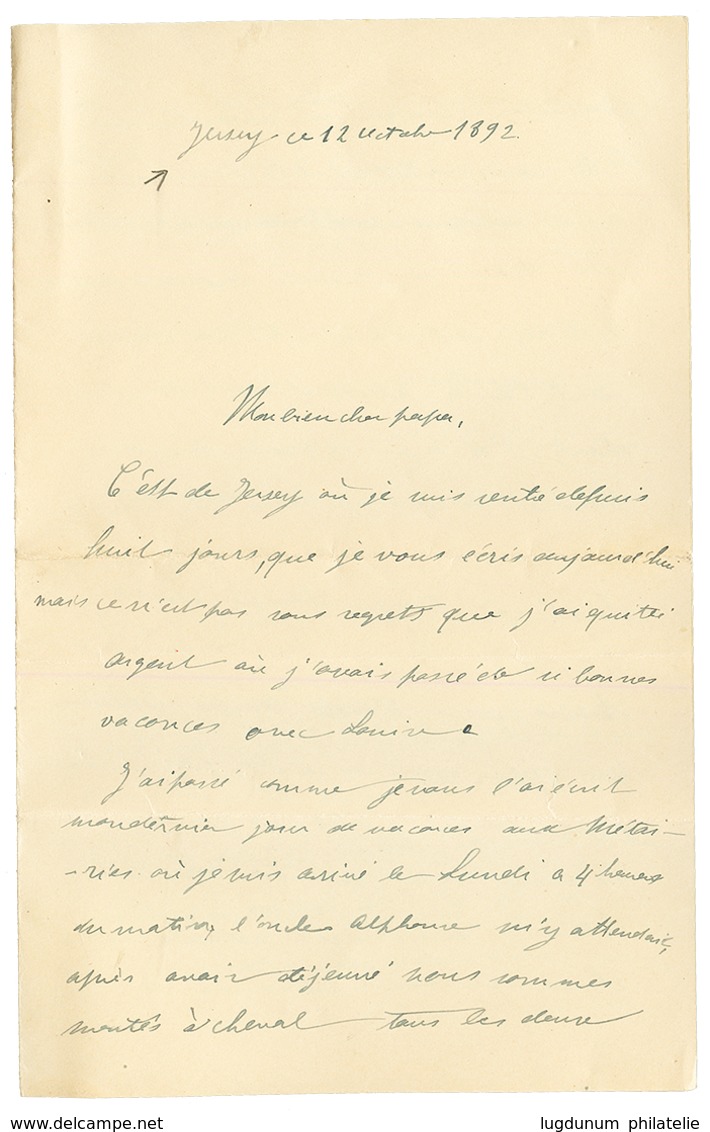 Jersey ce 12 Octobre 1892.
Mon bien cher papa,
C'est de Jersey où je suis rentré depuis
huit jours, que je vous écris aujourd'hui
mais ce n'est pas sans regrets que j'ai quitté
Argent où j'avais passé de si bonnes
vacances avec Louise.
J'ai passé comme je vous l'ai écrit
mon dernier jour de vacances aux Métai-
-ries où je suis arrivé le Lundi a 4 heures
du matin, l'oncle Alphonse m'y attendait,
après avoir déjeuné nous sommes
montés à cheval tous les deux
lugdunum philatelie